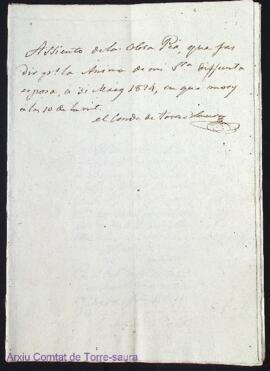 Assiento de la Obra Pia, que fas
dir pr. la Anima de mi Sra. Diffunta
esposa, á 31 Maig 1824, en que morý
á las 10 de la nit.
el Conde de Torre-Saura
Arxiu Comtat de Torre-saura